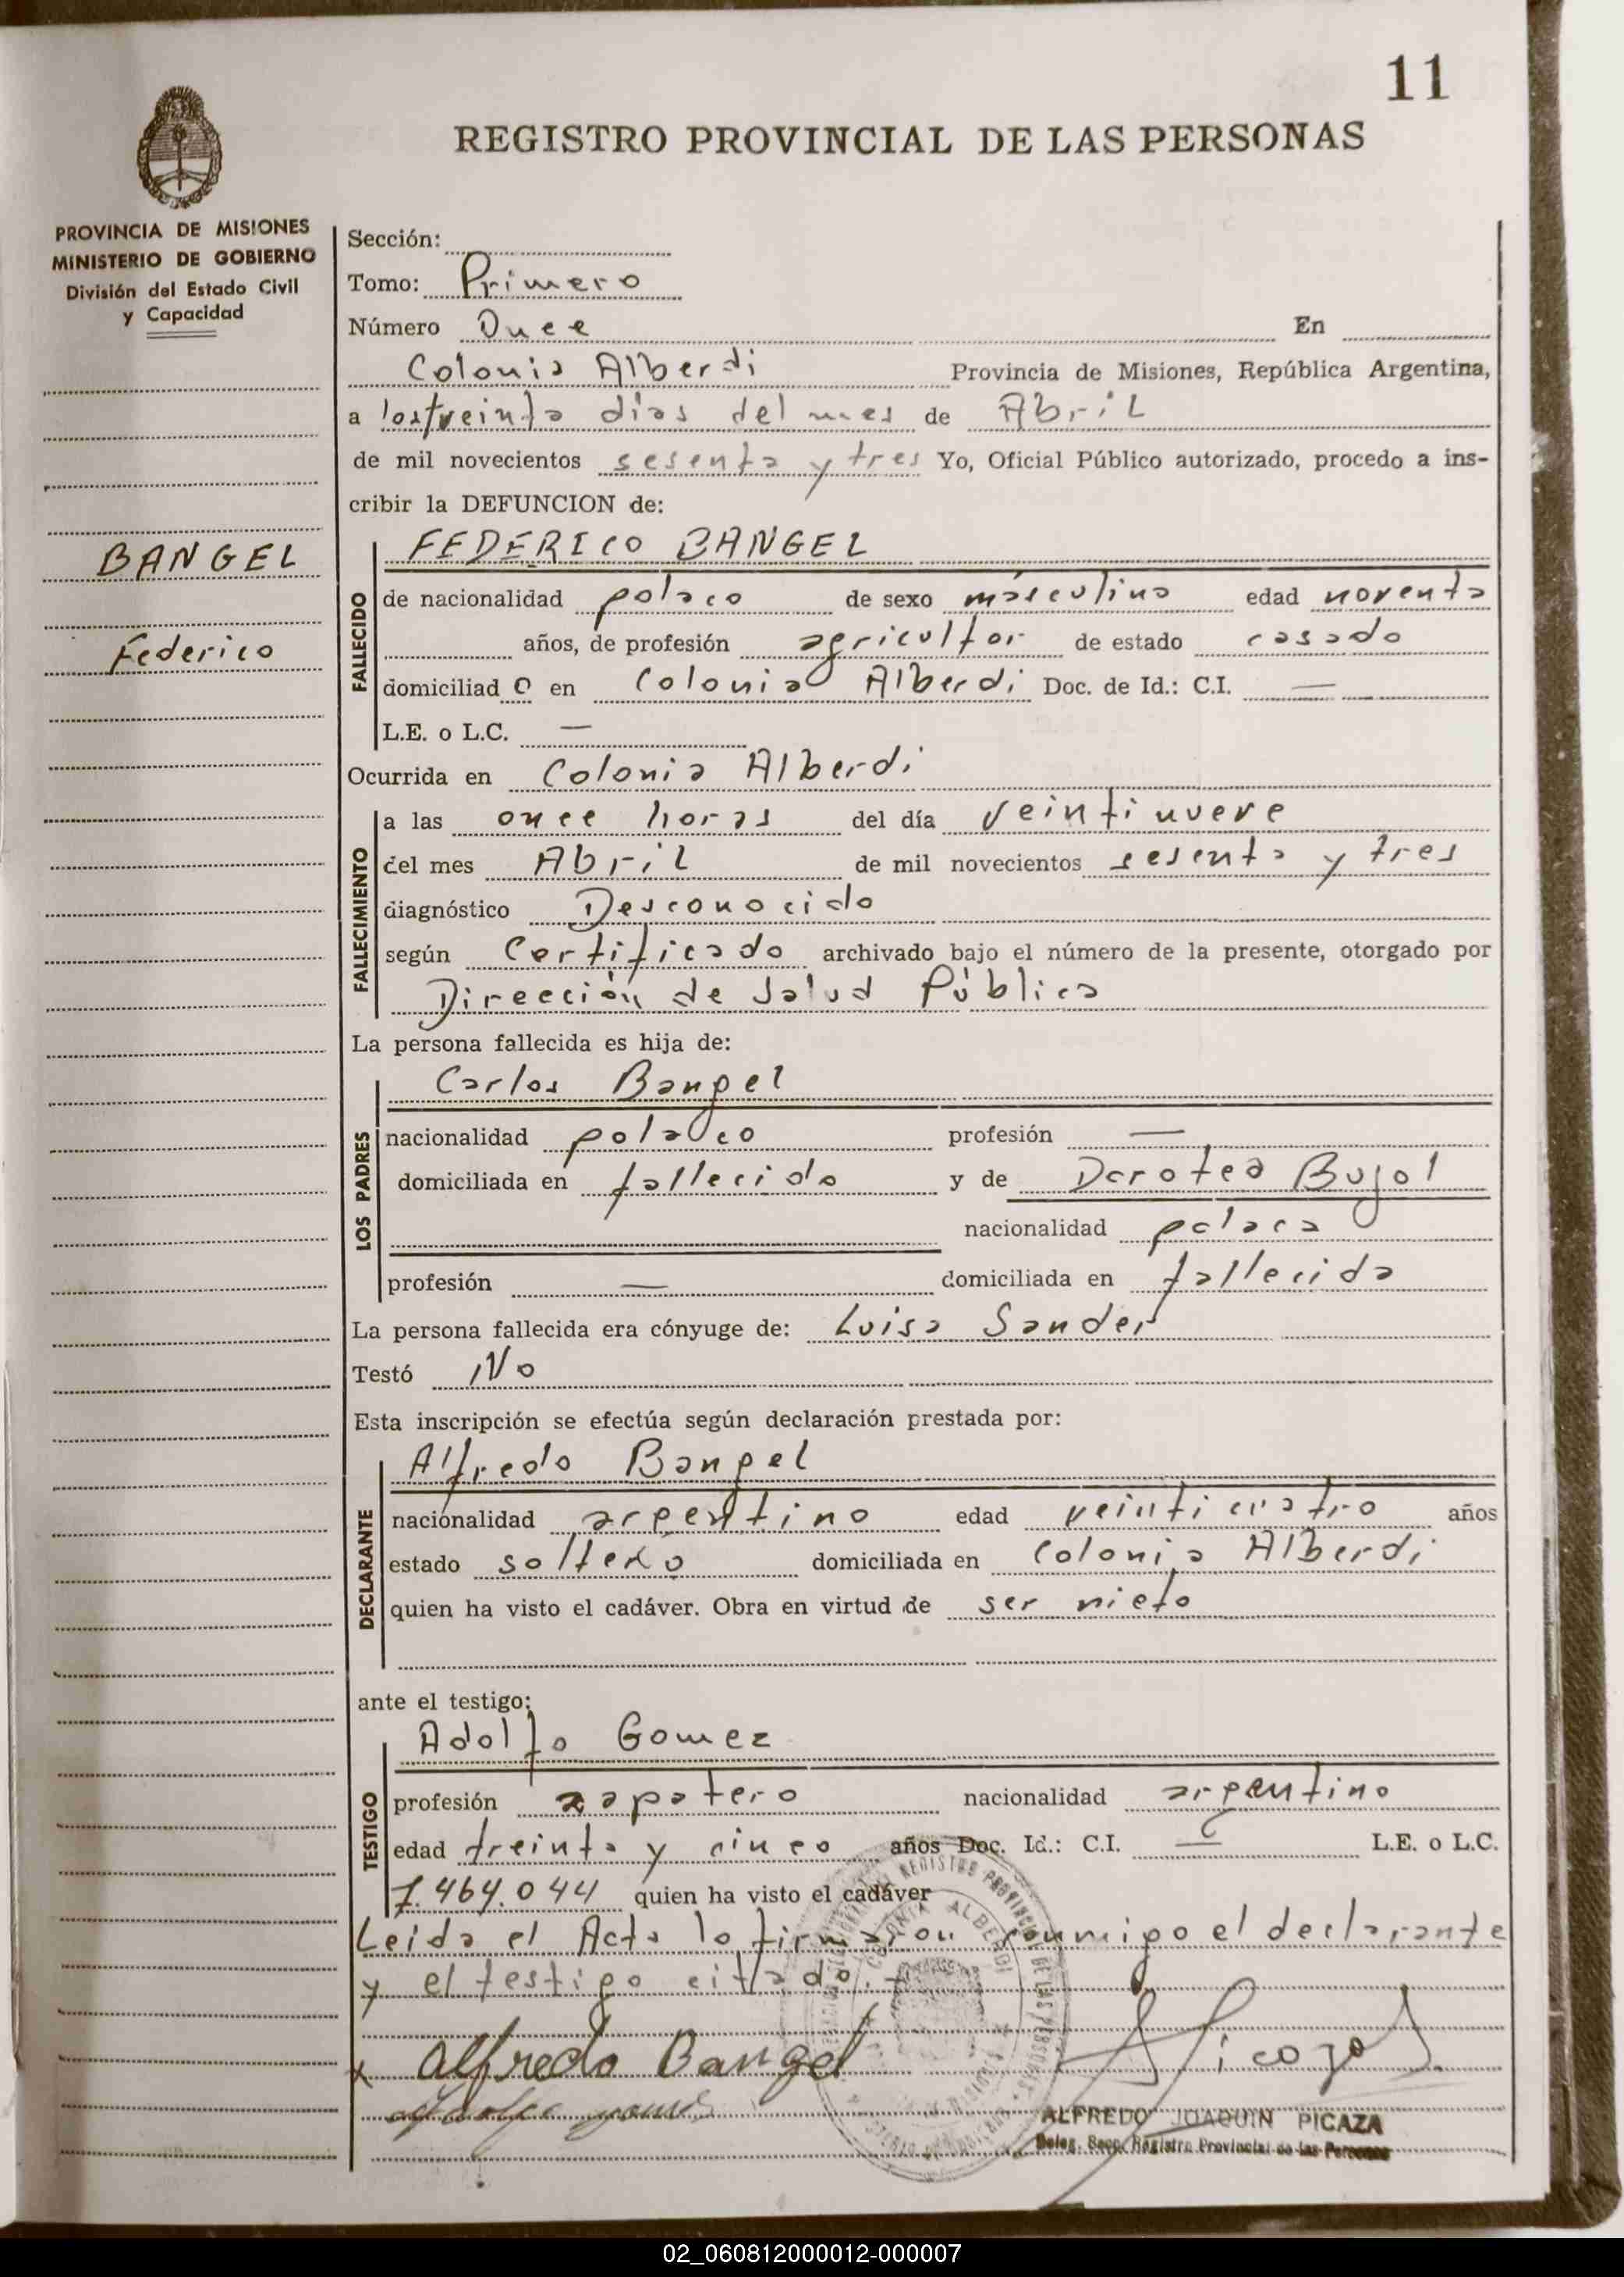 11
REGISTRO PROVINCIAL DE LAS PERSONAS
PROVINCIA DE MISIONES
MINISTERIO DE GOBIERNO
División del Estado Civil
y Capacidad
BANGEL
Federico
Sección:
Tomo: Primero
Número Once En
Colonia Alberdi Provincia de Misiones, República Argentina,
a los treinta dias del mes de Abril
de mil novecientos sesenta y tres Yo, Oficial Público autorizado, procedo a ins-
cribir la DEFUNCION de:
FALLECIDO
FEDERICO BANGEL
de nacionalidad polaco de sexo masculino edad noventa
años, de profesión agricultor de estado casado
domiciliad o en Colonia Alberdi Doc. de Id.: C.I. —
L.E. o L.C. —
Ocurrida en Colonia Alberdi
FALLECIMIENTO
a las once horas del día veintinueve
del mes Abril de mil novecientos sesenta y tres
diagnóstico Desconocido
según Certificado archivado bajo el número de la presente, otorgado por
Dirección de Salud Pública
La persona fallecida es hija de:
LOS PADRES
Carlos Bangel
nacionalidad polaco profesión —
domiciliada en fallecido y de Dorotea Bujol
nacionalidad polaca
profesión — domiciliada en fallecida
La persona fallecida era cónyuge de: Luisa Sander
Testó No
Esta inscripción se efectúa según declaración prestada por:
DECLARANTE
Alfredo Bangel
nacionalidad argentino edad veinticuatro años
estado soltero domiciliada en Colonia Alberdi
quien ha visto el cadáver. Obra en virtud de ser nieto
ante el testigo:
TESTIGO
Adolfo Gomez
profesión zapatero nacionalidad argentino
edad treinta y cinco años Doc. Id.: C.I. — L.E. o L.C.
7.464.044 quien ha visto el cadáver
Leida el Acta lo firmaron conmigo el declarante
y el testigo citado. —
x Alfredo Bangel
COLONIA ALBERDI
ALFREDO JOAQUIN PICAZA
Deleg. Secc. Registro Provincial de las Personas
02_060812000012-000007